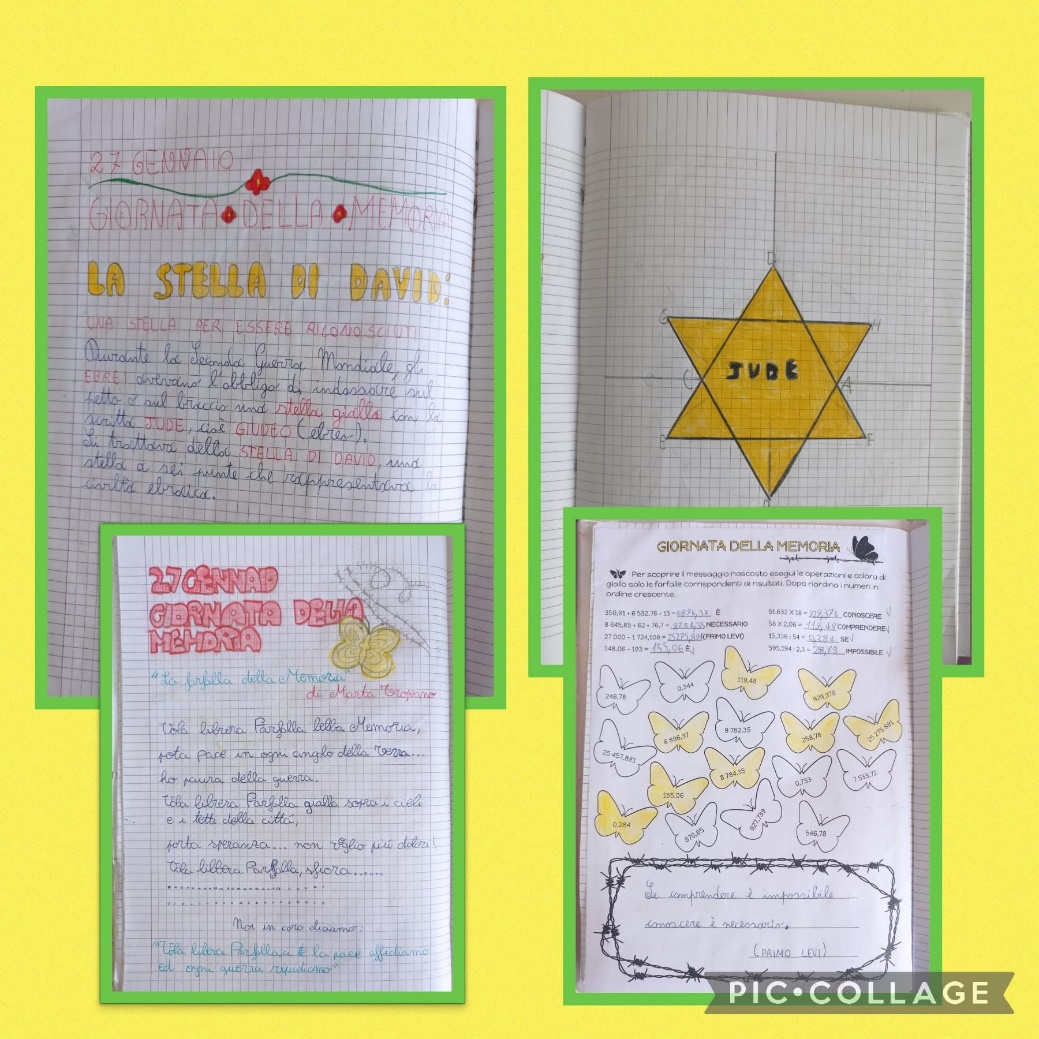 27 GENNAIO
GIORNATA DELLA MEMORIA
LA STELLA DI DAVID:
UNA STELLA PER ESSERE RICONOSCIUTI
Durante la Seconda Guerra Mondiale, gli
EBREI avevano l'obbligo di indossare sul
petto o sul braccio una stella gialla con la
scritta JUDE, cioè GIUDEO (ebreo).
Si trattava della STELLA DI DAVID, una
stella a sei punte che rappresentava la
civiltà ebraica.
D
G
H
JUDE
C
A
E
F
27 GENNAIO
GIORNATA DELLA
MEMORIA
"La farfalla della Memoria"
di Marta
Vola libera Farfalla della Memoria,
porta pace in ogni angolo della Terra...
ho paura della guerra.
Vola libera Farfalla gialla sopra i cieli
e i tetti della città,
porta speranza... non voglio più dolori!
Vola libera Farfalla, sfiora......
Noi in coro diciamo:
"Vola libera Farfalla a te la pace affidiamo
ed ogni guerra ripudiamo"
GIORNATA DELLA MEMORIA
Per scoprire il messaggio nascosto esegui le operazioni e colora di
giallo solo le farfalle corrispondenti ai risultati. Dopo riordina i numeri in
ordine crescente.
350,61 + 6 532,76 + 13 = 6896,37 È
8 645,65 + 62 + 76,7 = 8784,35 NECESSARIO
27 000 - 1 724,109 = 25275,891 (PRIMO LEVI)
348,06 - 193 = 155,06 È
51,632 X 18 = 929,376 CONOSCERE
58 X 2,06 = 119,48 COMPRENDERE
15,336 : 54 = 0,284 SE
595,194 : 2,3 = IMPOSSIBILE
246,78
0,344
119,48
929,376
6 896,37
8 782,35
258,78
25 275,891
25 457,881
155,06
8 784,35
0,753
7 533,72
0,284
870,65
927,789
546,78
Se comprendere è impossibile
conoscere è necessario.
(PRIMO LEVI)
PIC•COLLAGE